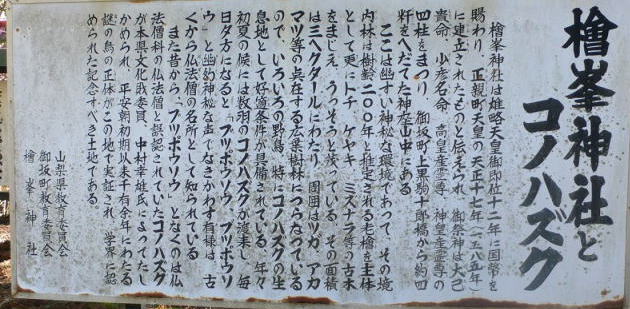 檜峯神社と
コノハズク
檜峯神社は雄略天皇御即位十二年に国幣を
賜わり、正親町天皇の天正十七年(一五八五年)
に建立されたものと伝えられ、御祭神は大己
貴命、少彦名命、高皇産霊尊、神皇産霊尊の
四柱をまつり、御坂町上黒駒十郎橋から約四
粁をへだてた神座山中にある
ここは幽すい神秘な環境であって、その境
内林は樹齢二〇〇年と推定される老檜を主体
として更にトチ、ケヤキ、ミズナラ等の古木
をまじえ、うっそうと茂っている。その面積
は三ヘクタールにわたり、周囲はツガ、アカ
マツ等の点在する広葉樹林につらなっている
ので、いろいろの野鳥、特にコノハズクの生
息地として好適条件が具備されている。年々
初夏の候には数羽のコノハズクが渡来し、毎
日夕方になると「ブッポウソウ、ブッポウソ
ウ」と幽幻神秘な声でなきかわす有様は、古
くから仏法僧の名所として知られている
また昔から「ブッポウソウ」となくのは仏
法僧科の仏法僧と誤認されていたコノハズク
が本県文化財委員、中村幸雄氏によってたし
かめられ、平安朝初期以来千有余年にわたる
謎の鳥の正体がこの地で実証され、学界に認
められた記念すべき土地である。
山梨県教育委員会
御坂町教育委員会
檜峯神社